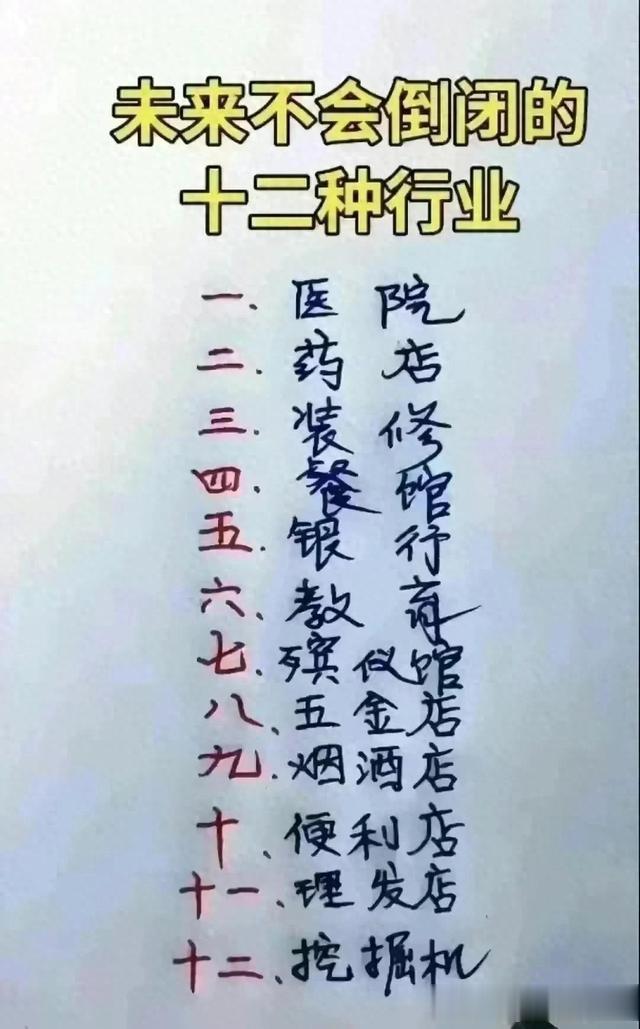 未来不会倒闭的
十二种行业
一、医院
二、药店
三、装修
四、餐馆
五、银行
六、教育
七、殡仪馆
八、五金店
九、烟酒店
十、便利店
十一、理发店
十二、挖掘机